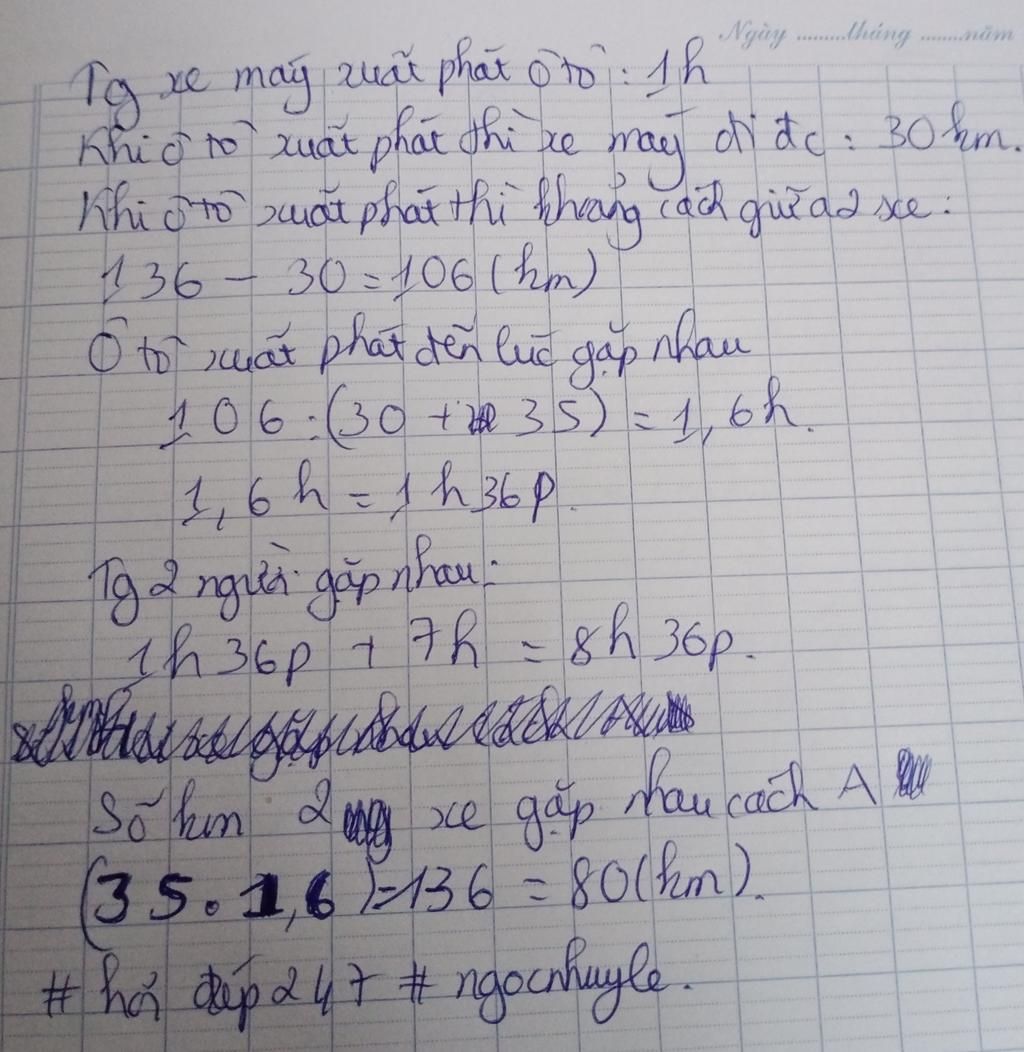 Ngày .........tháng .......năm
Tg xe máy xuất phát ô tô : 1h
Khi ô tô xuất phát thì xe máy đi đc : 30 km.
Khi ô tô xuất phát thì khoảng cách giữa 2 xe :
136 - 30 = 106 (km)
Ô tô xuất phát đến lúc gặp nhau
106 : (30 + 35) = 1,6h.
1,6h = 1h36p.
Tg 2 người gặp nhau :
1h36p + 7h = 8h36p.
Số km 2 xe gặp nhau cách A
(35.1,6)-136 = 80(km).
# hỏi đáp247 # ngocnhuyle.